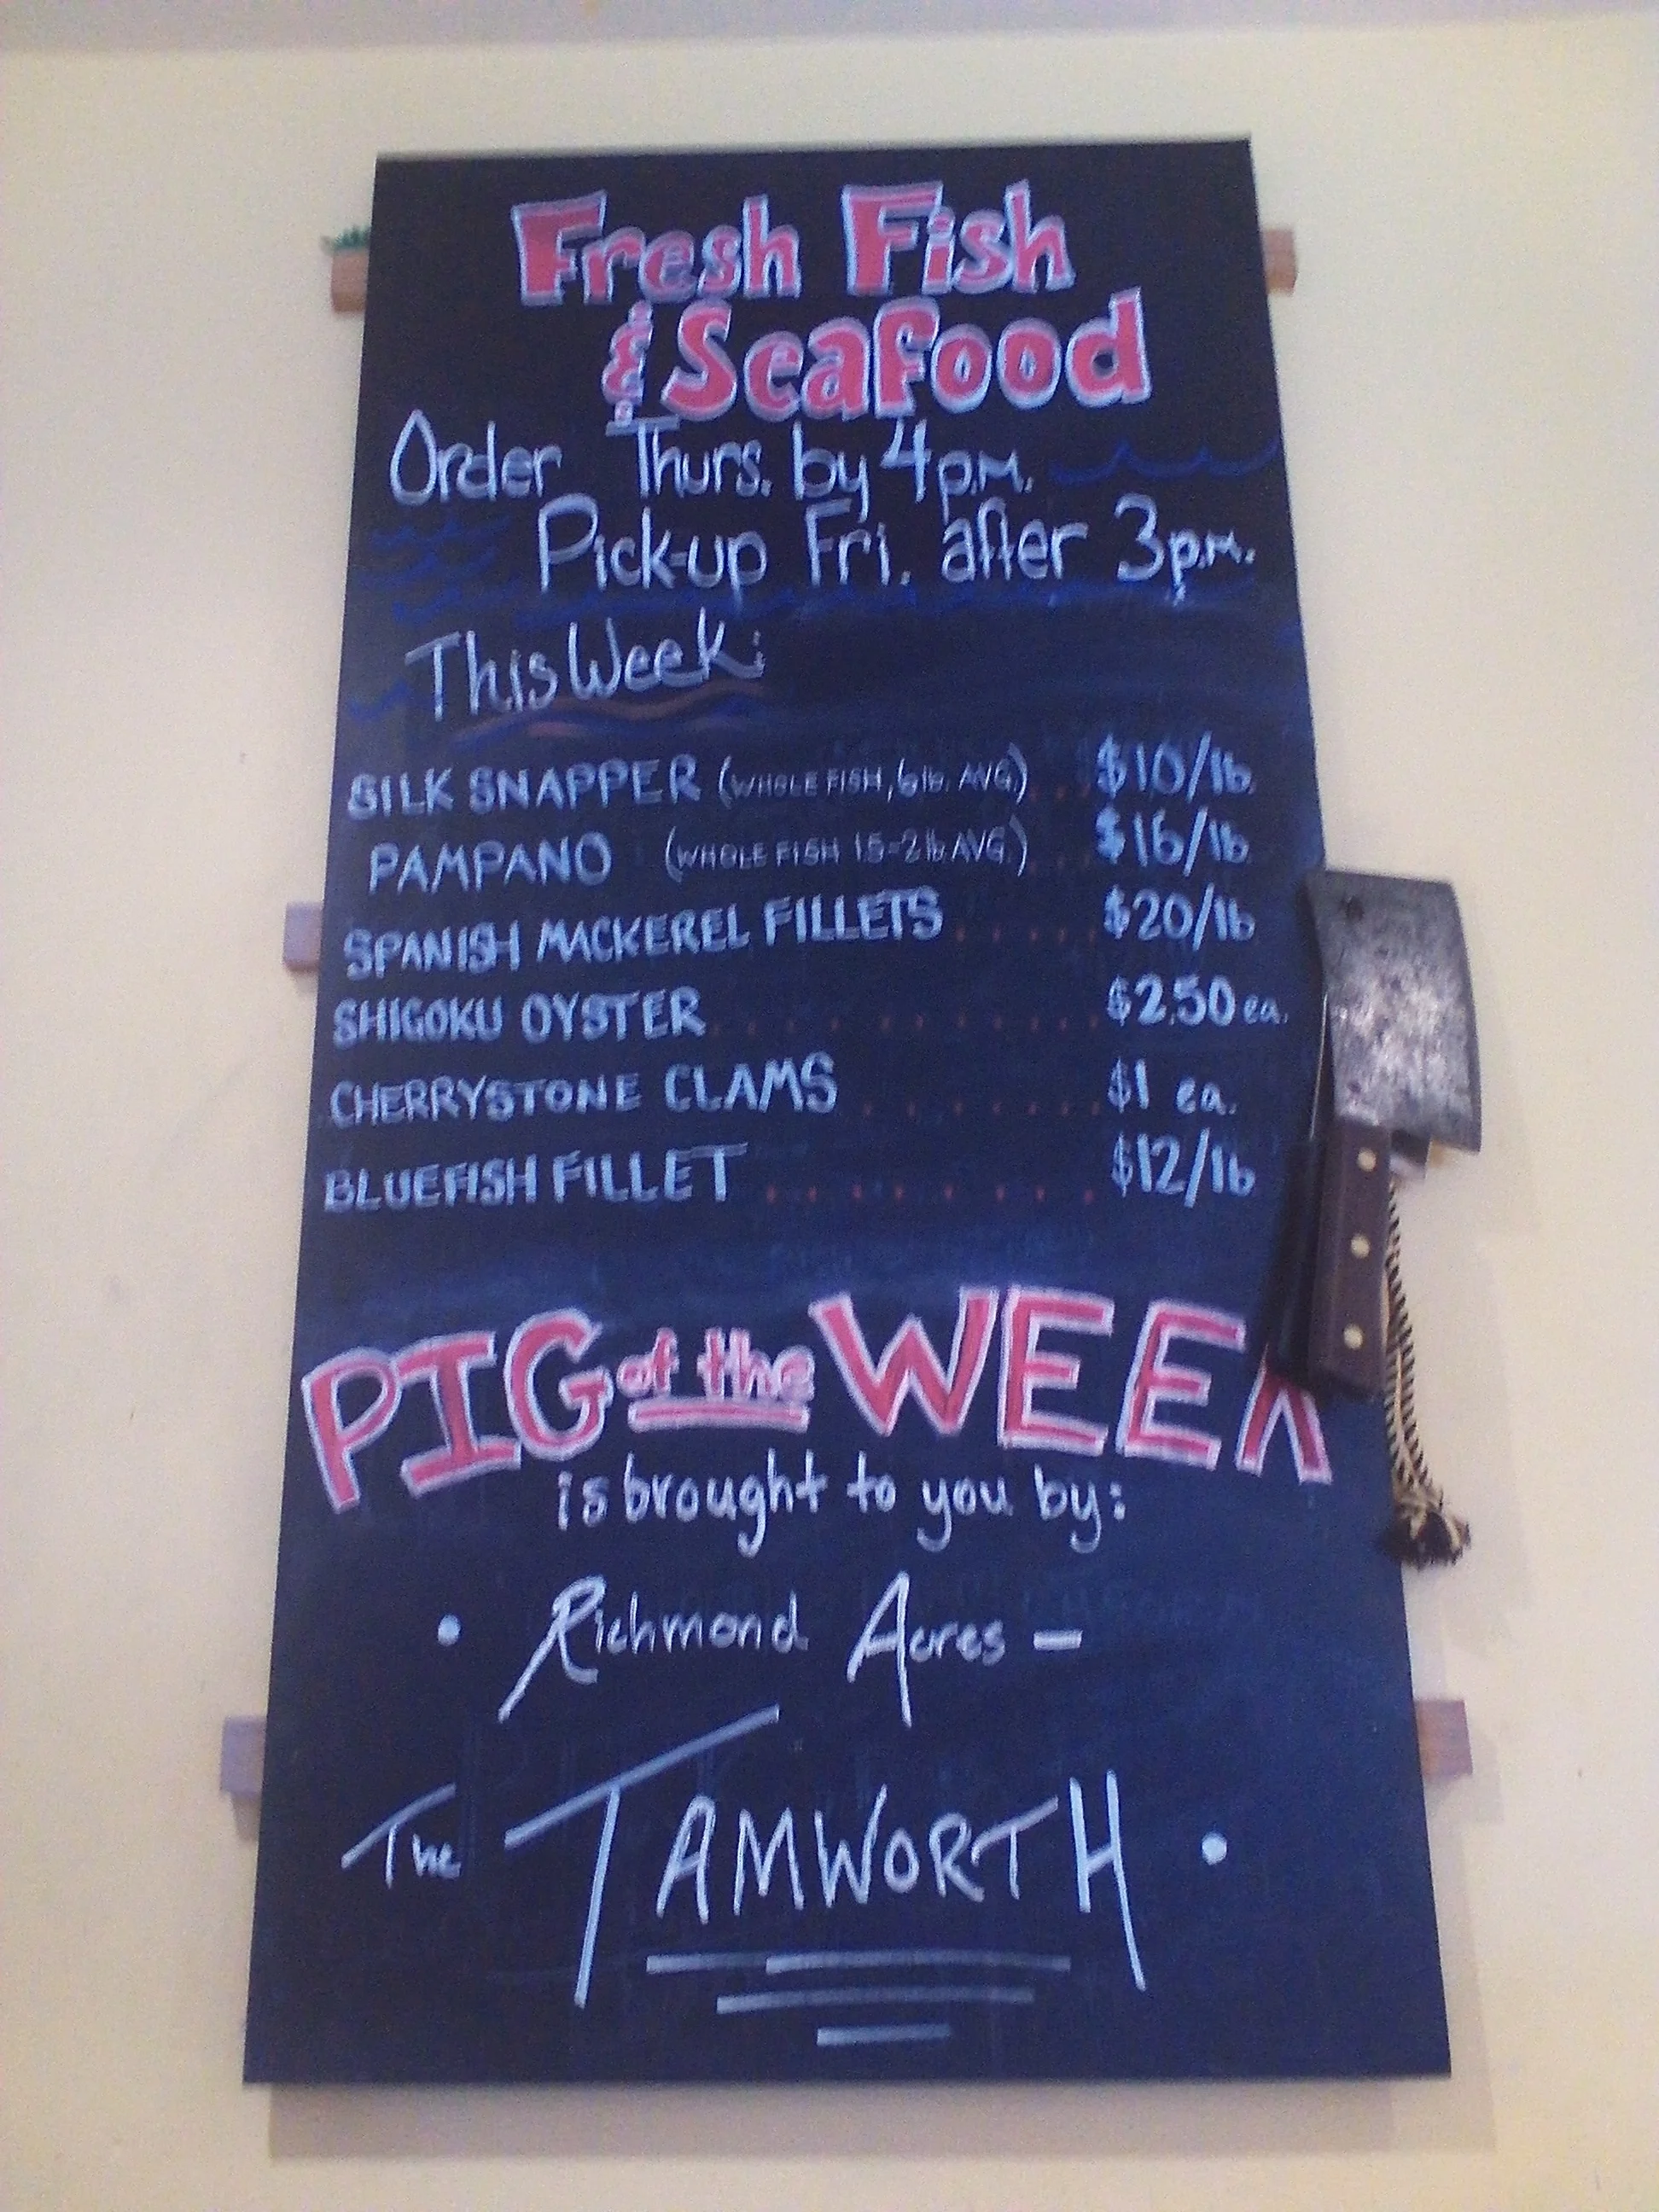 Fresh Fish
& Seafood
Order Thurs. by 4 p.m.
Pick-up Fri. after 3 p.m.
This Week:
SILK SNAPPER (WHOLE FISH, 6 lb. AVG.) .. $10/lb.
PAMPANO (WHOLE FISH 1.5-2 lb AVG.) ... $16/lb
SPANISH MACKEREL FILLETS ..... $20/lb
SHIGOKU OYSTER .......... $2.50 ea.
CHERRYSTONE CLAMS ....... $1 ea.
BLUEFISH FILLET ........ $12/lb
PIG of the WEEK
is brought to you by:
• Richmond Acres —
The TAMWORTH •